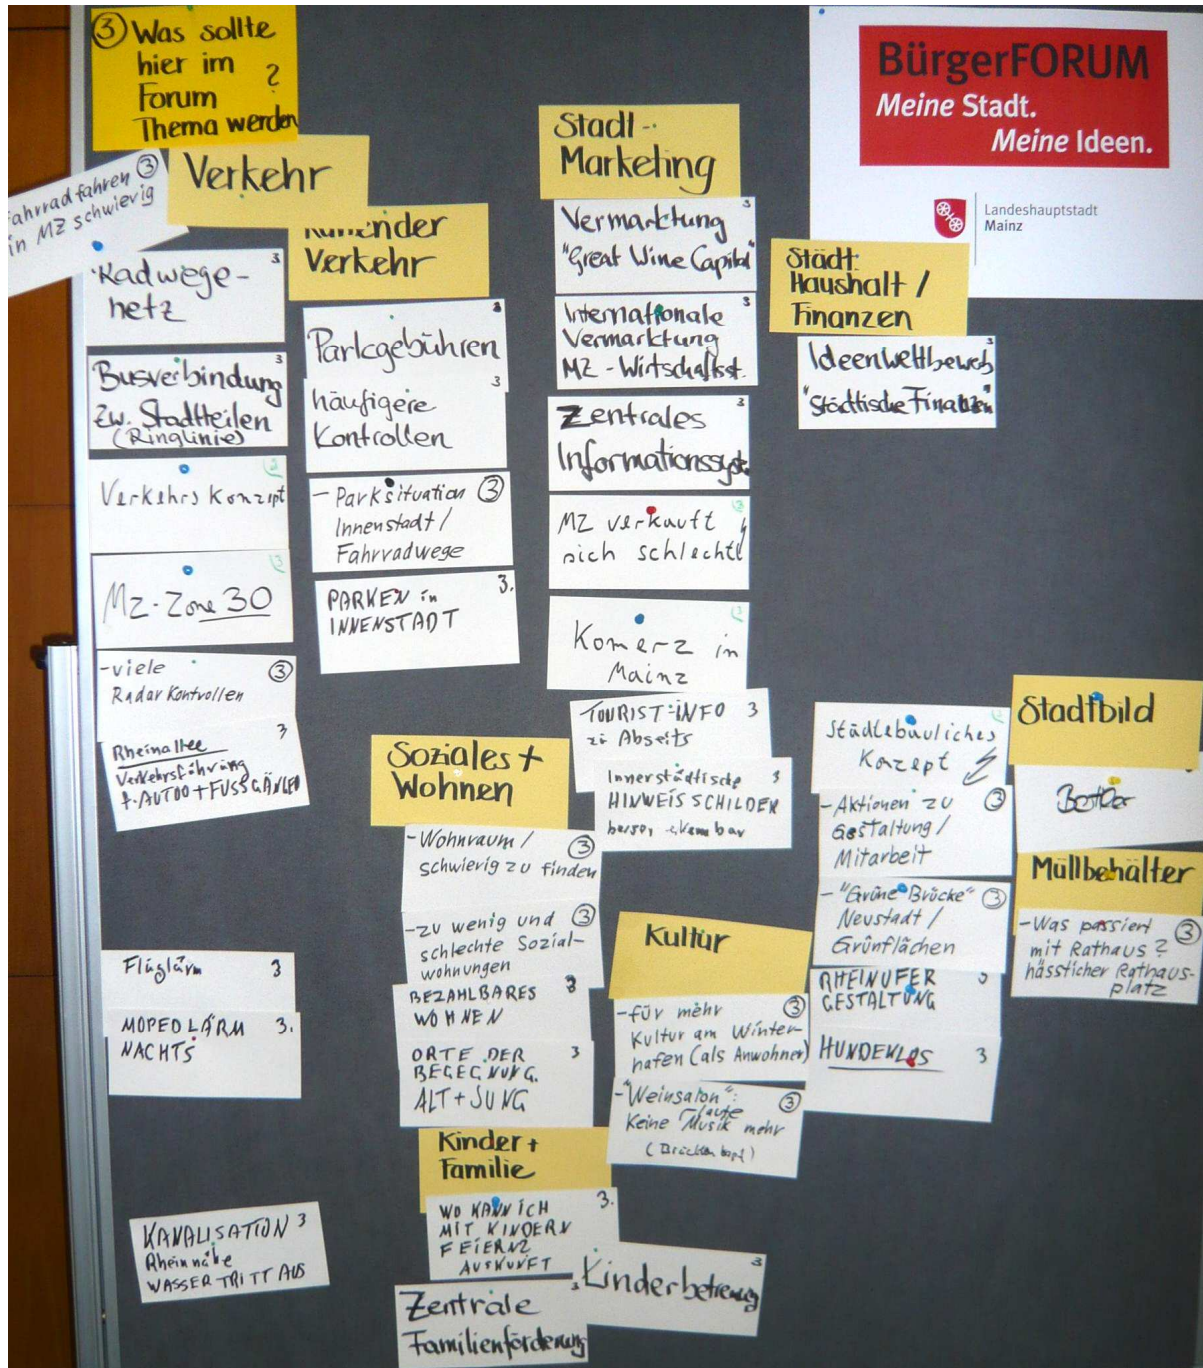 ③ Was sollte
hier im
Forum ?
Thema werden
BürgerFORUM
Meine Stadt.
Meine Ideen.
Landeshauptstadt
Mainz
Verkehr
ahrradfahren ③
in MZ schwierig
Radwege- 3
netz
Busverbindung 3
zw. Stadtteilen
(Ringlinie)
Verkehrskonzept
MZ-Zone 30
-viele ③
Radar Kontrollen
Rheinallee 3
Verkehrsführung
f. AUTOO+FUSSGÄNGER
Fluglärm 3
MOPEDLÄRM 3.
NACHTS
KANALISATION 3
Rheinnähe
WASSER TRITT AUS
Ruhender
Verkehr
Parkgebühren 3
häufigere 3
Kontrollen
- Parksituation ③
Innenstadt/
Fahrradwege
PARKEN in 3.
INNENSTADT
Soziales +
Wohnen
-Wohnraum/ ③
schwierig zu finden
-zu wenig und ③
schlechte Sozial-
wohnungen
BEZAHLBARES 3
WOHNEN
ORTE DER 3
BEGEGNUNG.
ALT + JUNG
Kinder +
Familie
WO KANN ICH 3.
MIT KINDERN
FEIERN?
AUSKUNFT
Kinderbetreuung 3
Zentrale 3
Familienförderung
Stadt-
Marketing
Vermarktung 3
"Great Wine Capital"
Internationale 3
Vermarktung
MZ-Wirtschaftsst.
Zentrales 3
Informationssyst.
MZ verkauft
sich schlecht
Komerz in
Mainz
TOURIST-INFO 3
zu Abseits
Innerstädtische 3
HINWEISSCHILDER
besser erkennbar
Kultur
-für mehr ③
Kultur am Winter-
hafen (als Anwohner)
-"Weinsalon": ③
Keine laute
Musik mehr
(Brückenkopf)
Städt.
Haushalt /
Finanzen
Ideenwettbewerb 3
"Städtische Finanzen"
Städtebauliches
Konzept
- Aktionen zu ③
Gestaltung/
Mitarbeit
- "Grüne Brücke" ③
Neustadt/
Grünflächen
RHEINUFER 3
GESTALTUNG
HUNDEKLOS 3
Stadtbild
Müllbehälter
-Was passiert ③
mit Rathaus?
hässlicher Rathaus-
platz